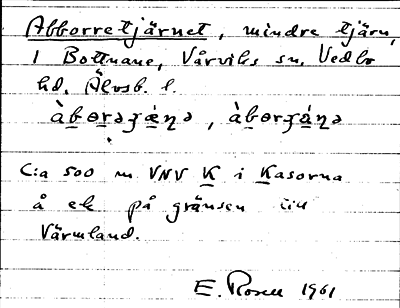 Abborretjärnet, mindre tjärn,
i Bottnane, Vårviks sn, Vedbo
hd, Älvsb. l.
àbərəʒæ̀ṇə, àbərʒáṇə
C:a 500 m VNV K i Kasorna
å ek på gränsen
Värmland.
E. Rosell 1961